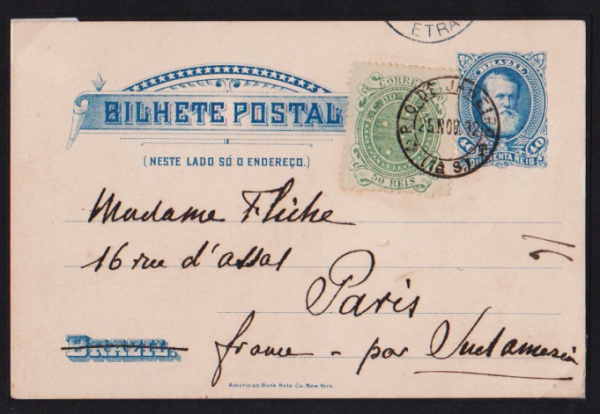 ETRA
BRAZIL
CORREIO
BILHETE POSTAL
E.U. DO BRAZIL
RIO DE JANEIRO
25 NOV
(NESTE LADO SÓ O ENDEREÇO.)
50 REIS
40 QUARENTA REIS 40
Madame Fliche
16 rue d'assas
Paris
BRAZIL.
france - par Sudamerica
American Bank Note Co. New York.